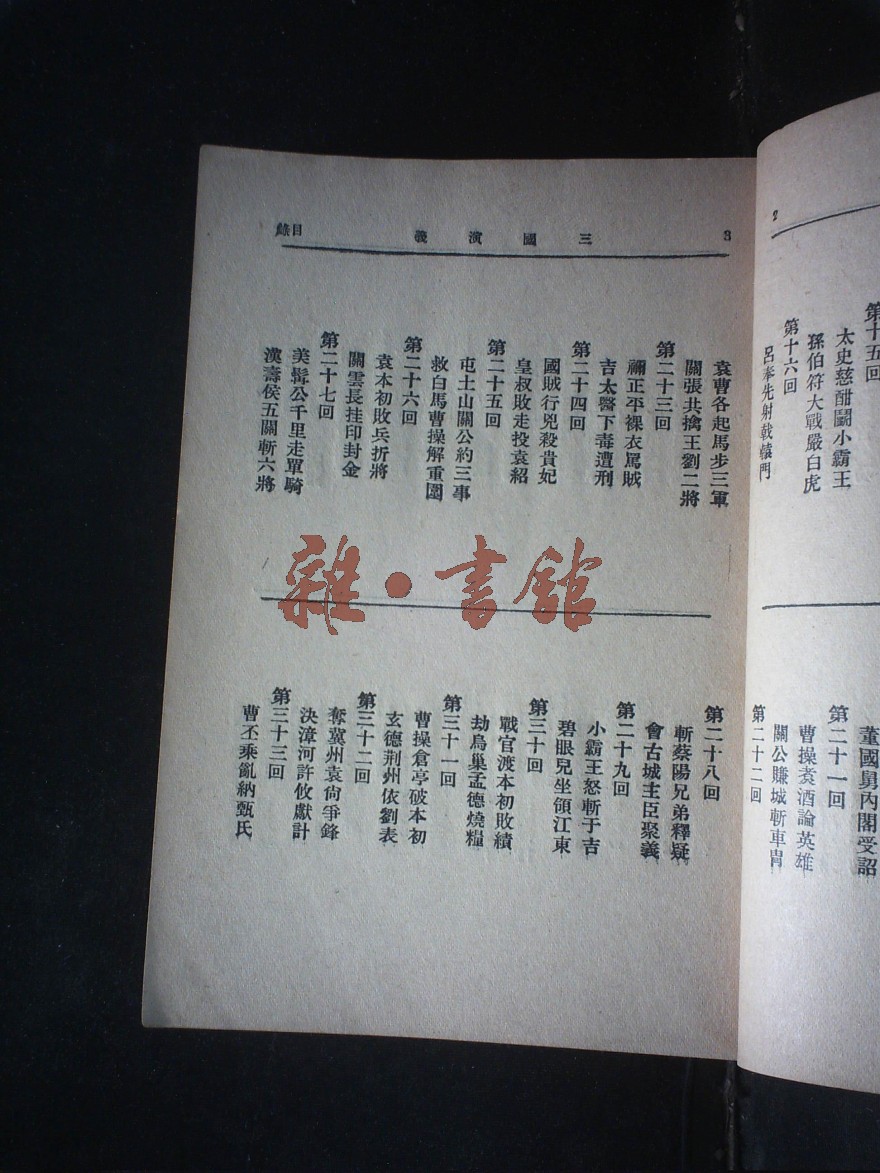 三國演義
目錄
3
袁曹各起馬步三軍
關張共擒王劉二將
第二十三回
禰正平裸衣罵賊
吉太醫下毒遭刑
第二十四回
國賊行兇殺貴妃
皇叔敗走投袁紹
第二十五回
屯土山關公約三事
救白馬曹操解重圍
第二十六回
袁本初敗兵折將
關雲長挂印封金
第二十七回
美髯公千里走單騎
漢壽侯五關斬六將
第二十八回
斬蔡陽兄弟釋疑
會古城主臣聚義
第二十九回
小霸王怒斬于吉
碧眼兒坐領江東
第三十回
戰官渡本初敗績
劫烏巢孟德燒糧
第三十一回
曹操倉亭破本初
玄德荆州依劉表
第三十二回
奪冀州袁尙爭鋒
決漳河許攸獻計
第三十三回
曹丕乘亂納甄氏
2
第十五回
太史慈酣鬭小霸王
孫伯符大戰嚴白虎
第十六回
呂奉先射戟轅門
董國舅內閣受詔
第二十一回
曹操煑酒論英雄
關公賺城斬車胄
第二十二回
雜·書館